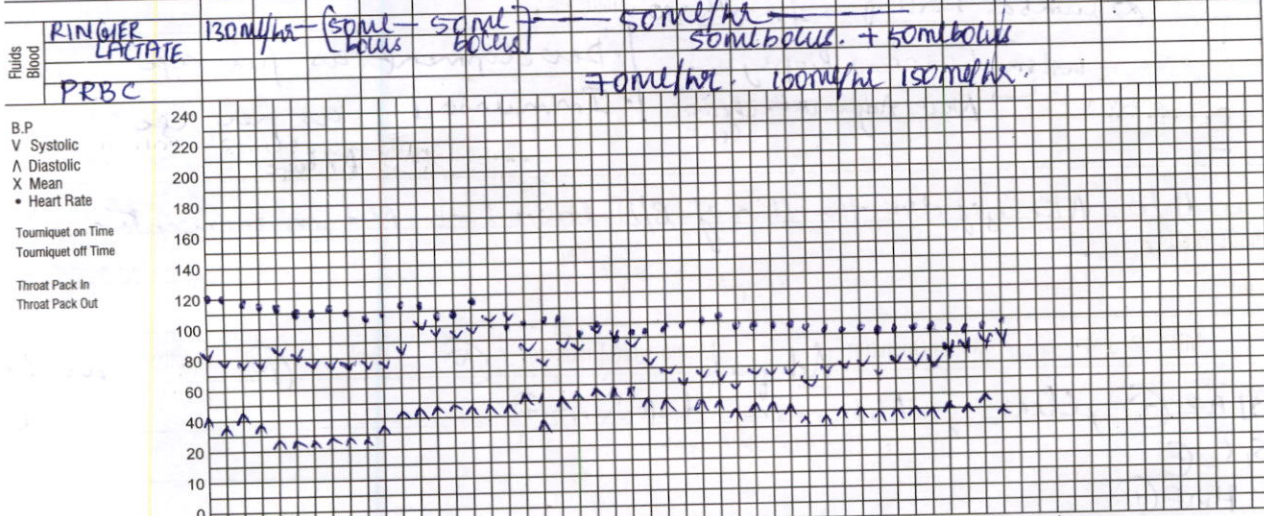 RINGER LACTATE 130ml/hr — [50ml bolus — 50ml bolus] — 50ml/hr —
50ml bolus. + 50ml bolus
Fluids
Blood
PRBC 70ml/hr. 100ml/hr 150ml/hr.
B.P
V Systolic
Λ Diastolic
X Mean
• Heart Rate
Tourniquet on Time
Tourniquet off Time
Throat Pack In
Throat Pack Out
240
220
200
180
160
140
120
100
80
60
40
20
10
0